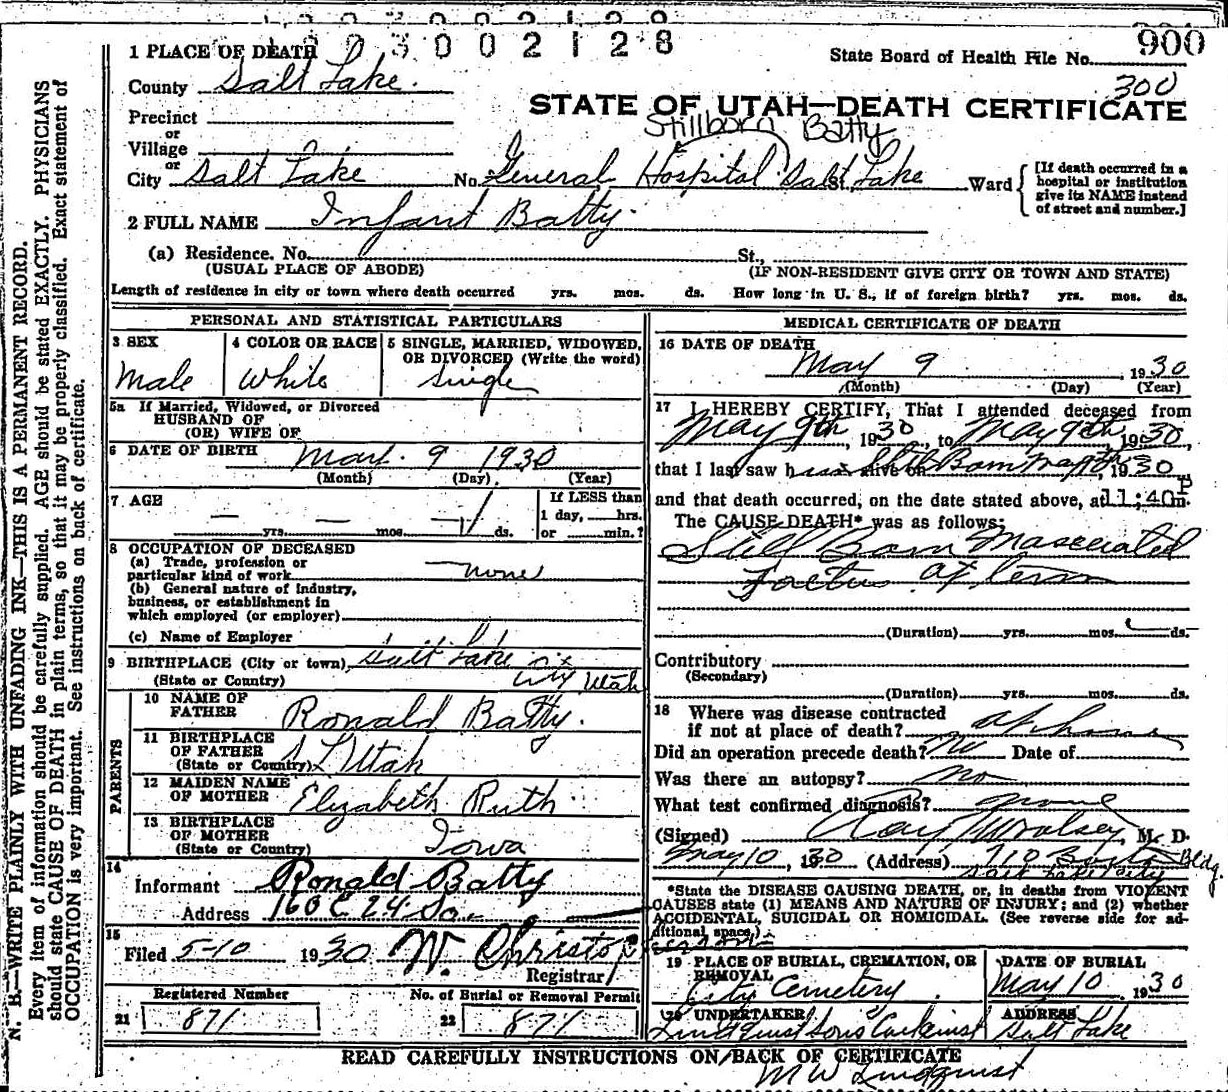 1 9 3 0 0 2 1 2 8
900
1 PLACE OF DEATH
State Board of Health File No.
300
County Salt Lake.
STATE OF UTAH—DEATH CERTIFICATE
Precinct
Stillborn Batty
or
Village
or
City Salt Lake No. General Hospital Salt Lake St. Ward
[If death occurred in a
hospital or institution
give its NAME instead
of street and number.]
2 FULL NAME Infant Batty.
(a) Residence. No. St.,
(USUAL PLACE OF ABODE) (IF NON-RESIDENT GIVE CITY OR TOWN AND STATE)
Length of residence in city or town where death occurred yrs. mos. ds. How long in U. S., if of foreign birth? yrs. mos. ds.
PERSONAL AND STATISTICAL PARTICULARS
3 SEX 4 COLOR OR RACE 5 SINGLE, MARRIED, WIDOWED,
OR DIVORCED (Write the word)
Male White Single
5a If Married, Widowed, or Divorced
HUSBAND OF
(OR) WIFE OF
6 DATE OF BIRTH May. 9 1930
(Month) (Day) (Year)
7 AGE If LESS than
1 day, hrs.
— yrs. — mos. — ds. or min.?
8 OCCUPATION OF DECEASED
(a) Trade, profession or
particular kind of work none
(b) General nature of industry,
business, or establishment in
which employed (or employer)
(c) Name of Employer
9 BIRTHPLACE (City or town) Salt Lake
(State or Country) City Utah
PARENTS
10 NAME OF
FATHER Ronald Batty.
11 BIRTHPLACE
OF FATHER
(State or Country) S L Utah
12 MAIDEN NAME
OF MOTHER Elizabeth Ruth
13 BIRTHPLACE
OF MOTHER
(State or Country) Iowa
14
Informant Ronald Batty
Address 160 E 24 So.
15
Filed 5-10 1930 W. Christo
Registrar
Registered Number No. of Burial or Removal Permit
21 871 22 871
MEDICAL CERTIFICATE OF DEATH
16 DATE OF DEATH
May 9 1930
(Month) (Day) (Year)
17 I HEREBY CERTIFY, That I attended deceased from
May 9th, 1930, to May 9th, 1930,
that I last saw h alive on Still Born May 9th, 1930
and that death occurred, on the date stated above, at 11:40 P m.
The CAUSE DEATH* was as follows:
Still Born Macerated
Foetus at term
(Duration) yrs. mos. ds.
Contributory
(Secondary)
(Duration) yrs. mos. ds.
18 Where was disease contracted
if not at place of death? at home
Did an operation precede death? No Date of
Was there an autopsy? No
What test confirmed diagnosis? none
(Signed) Ray Woolsey, M. D.
May 10, 1930 (Address) 710 Boston Bldg.
Salt Lake City
*State the DISEASE CAUSING DEATH, or, in deaths from VIOLENT
CAUSES state (1) MEANS AND NATURE OF INJURY; and (2) whether
ACCIDENTAL, SUICIDAL OR HOMICIDAL. (See reverse side for ad-
ditional space.)
19 PLACE OF BURIAL, CREMATION, OR
REMOVAL
City Cemetery.
DATE OF BURIAL
May 10 1930
20 UNDERTAKER
Lindquist Sons
ADDRESS
Salt Lake
READ CAREFULLY INSTRUCTIONS ON BACK OF CERTIFICATE
M W Lindquist
N. B.—WRITE PLAINLY WITH UNFADING INK—THIS IS A PERMANENT RECORD.
Every item of information should be carefully supplied. AGE should be stated EXACTLY. PHYSICIANS
should state CAUSE OF DEATH in plain terms, so that it may be properly classified. Exact statement of
OCCUPATION is very important. See instructions on back of certificate.